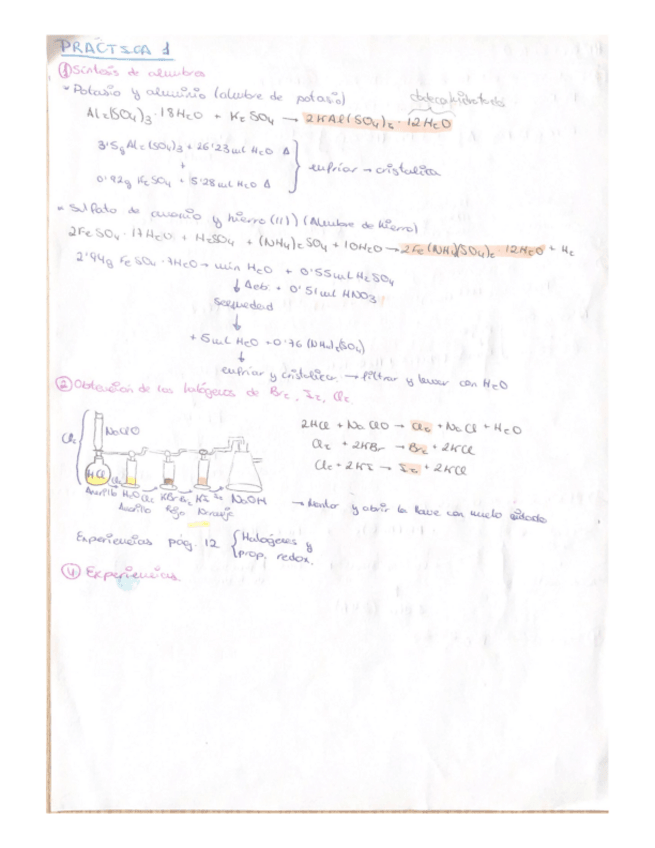 PRÁCTICA 1
① Síntesis de alumbres
* Potasio y aluminio (alumbre de potasio)
Al₂(SO₄)₃·18H₂O + K₂SO₄ → 2KAl(SO₄)₂·12H₂O
3'5g Al₂(SO₄)₃ + 26'23 mL H₂O Δ
+
0'92g K₂SO₄ + 5'28 mL H₂O Δ
enfriar → cristaliza
* Sulfato de amonio y hierro (III) (Alumbre de hierro)
2FeSO₄·17H₂O + H₂SO₄ + (NH₄)₂SO₄ + 10H₂O → 2Fe(NH₄)(SO₄)₂·12H₂O + H₂
2'94g FeSO₄·7H₂O → mín H₂O + 0'55 mL H₂SO₄
↓ Δeb. + 0'51 mL HNO₃
sequedad
↓
+ 5 mL H₂O + 0'76 (NH₄)₂(SO₄)
↓
enfriar y cristalizar → filtrar y lavar con H₂O
② Obtención de los halógenos de Br₂, I₂, Cl₂
Cl₂
NaClO
HCl
Cl₂
2HCl + NaClO → Cl₂ + NaCl + H₂O
Cl₂ + 2KBr → Br₂ + 2KCl
Cl₂ + 2KI → I₂ + 2KCl
Amarillo H₂O Cl₂ KBr Br₂ KI I₂ NaOH
Amarillo Rojo Naranja
→ Montar y abrir la llave con mucho cuidado
Experiencias pág. 12 { Halógenos y
prop. redox.
④ Experiencias.